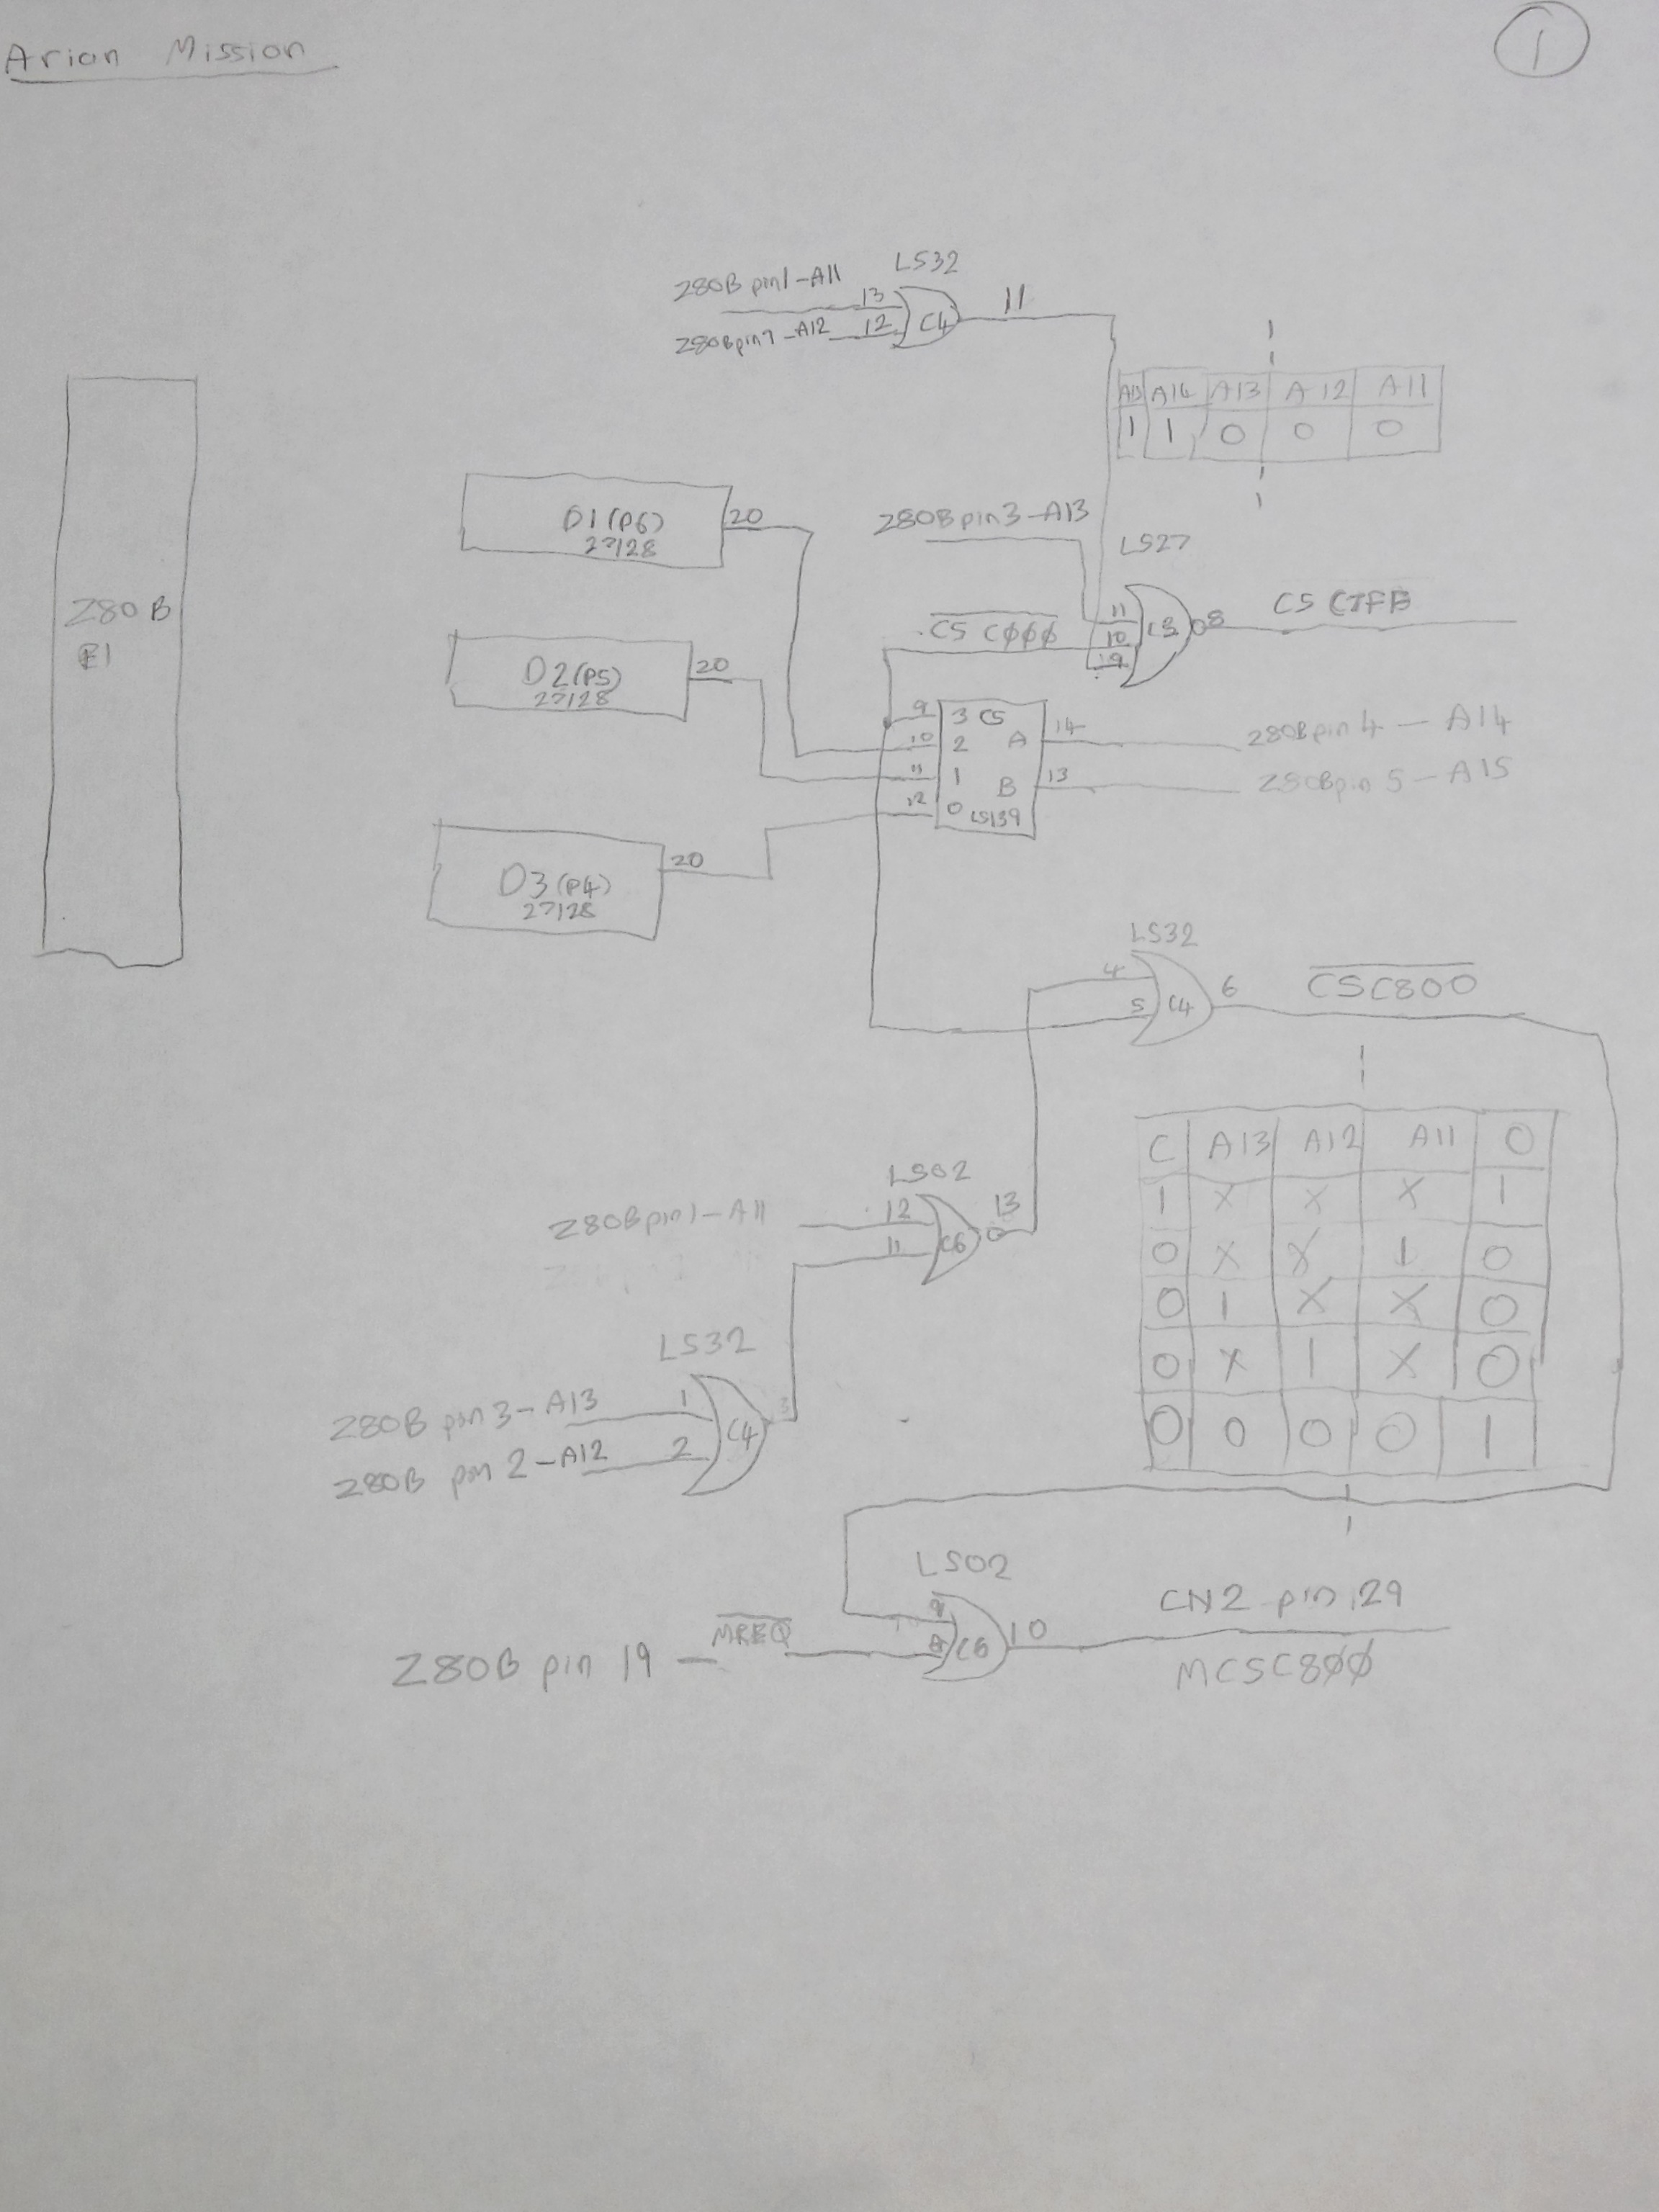 Arian Mission
1
Z80B pin1-A11
LS32
13
11
Z80Bpin7-A12
12
C4
A15 A14 A13 A12 A11
1 1 0 0 0
D1(P6)
27128
20
Z80Bpin3-A13
LS27
CS C000
11
10
9
8
Z80B
E1
D2(P5)
27128
20
9 3 CS
10 2 A 14
Z80Bpin4 - A14
11 1 B 13
Z80Bpin5 - A15
12 0 LS139
D3(P4)
27128
20
LS32
4
5 C4
6
CSC800
C A13 A12 A11 O
1 X X X 1
0 X X 1 0
0 1 X X 0
0 X 1 X 0
0 0 0 0 1
LS02
Z80Bpin1-A11
12
11
C6
13
LS32
Z80B pin3-A13
1
3
C4
Z80B pin 2-A12
2
LS02
9
8
C6
10
Z80B pin 19 - MREQ
CN2 pin 29
MCSC800